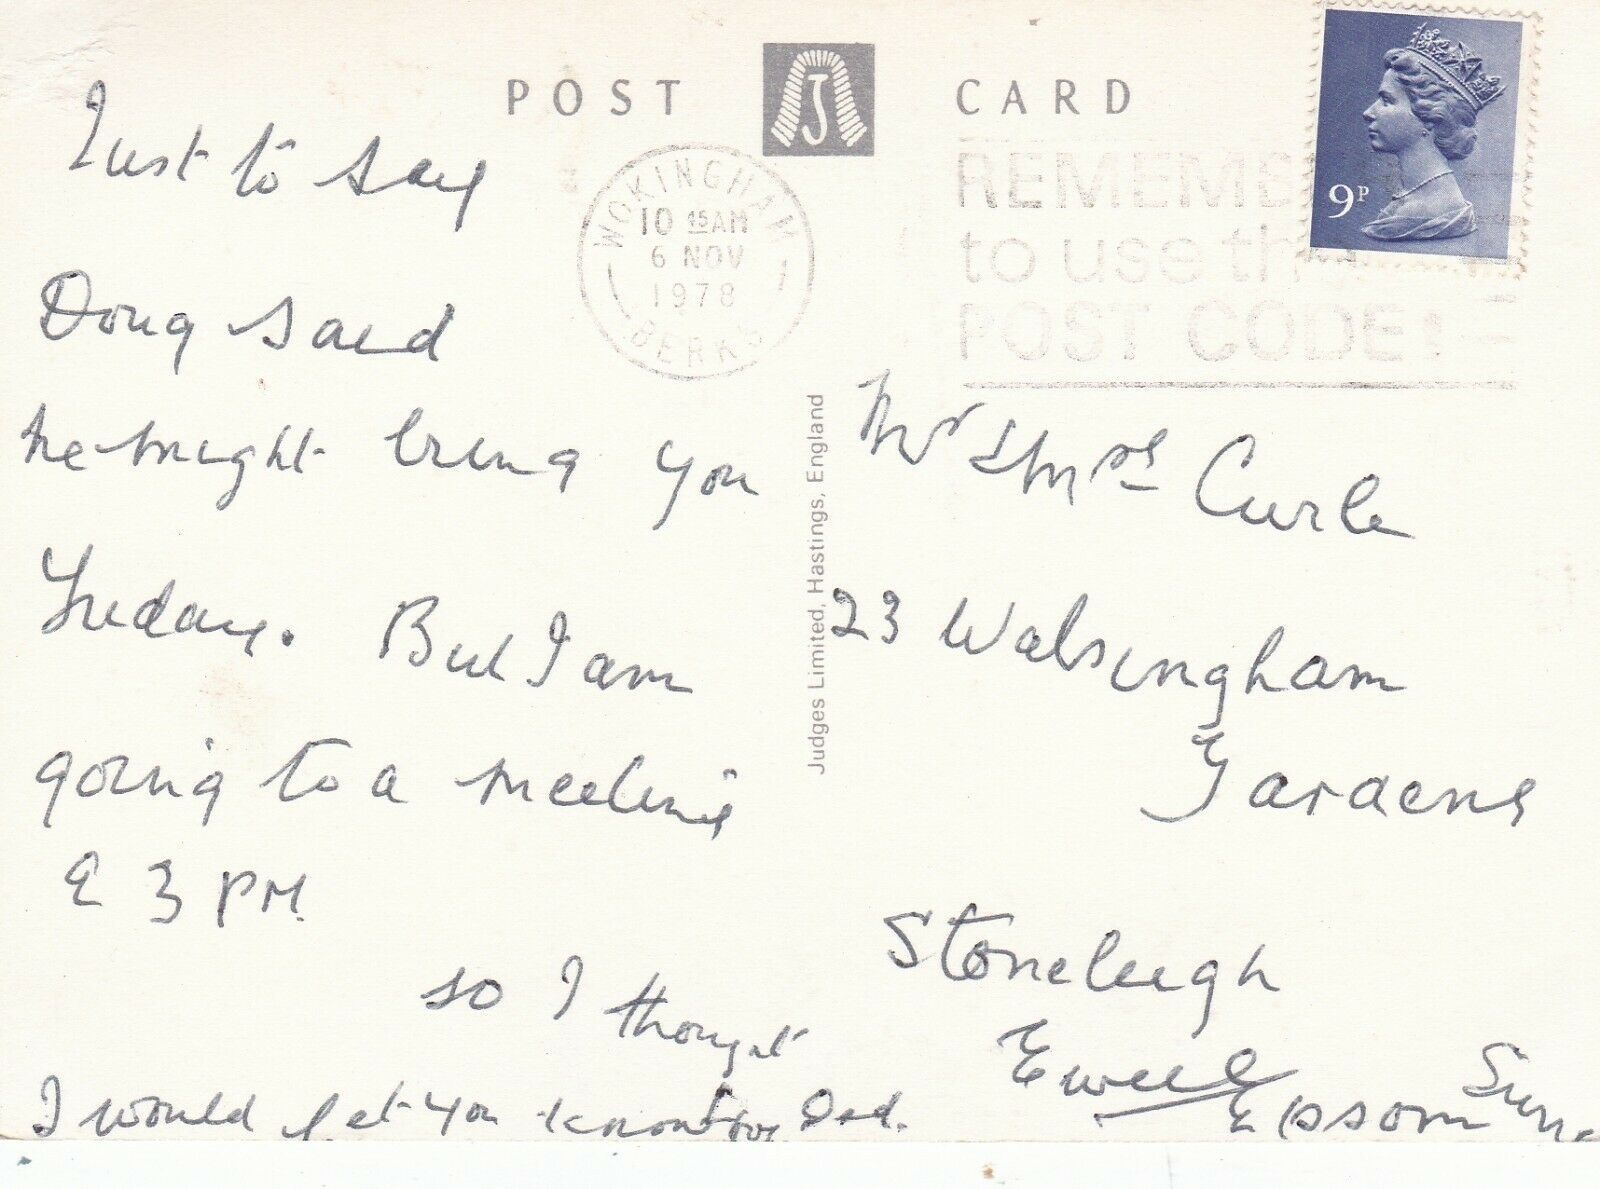 POST CARD
J
WOKINGHAM
10 45AM
6 NOV
1978
BERKS
1
REMEMBER
to use the
POST CODE
9P
Just to say
Doug said
he might bring you
Friday. But I am
going to a meeting
@ 3 PM.
so I thought
I would let you know love Dad.
Judges Limited, Hastings, England
Mr & Mrs Curle
23 Walsingham
Gardens
Stoneleigh
Ewell
Epsom Surr